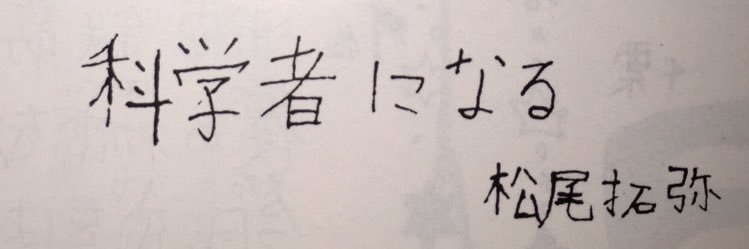 科学者になる
松尾拓弥